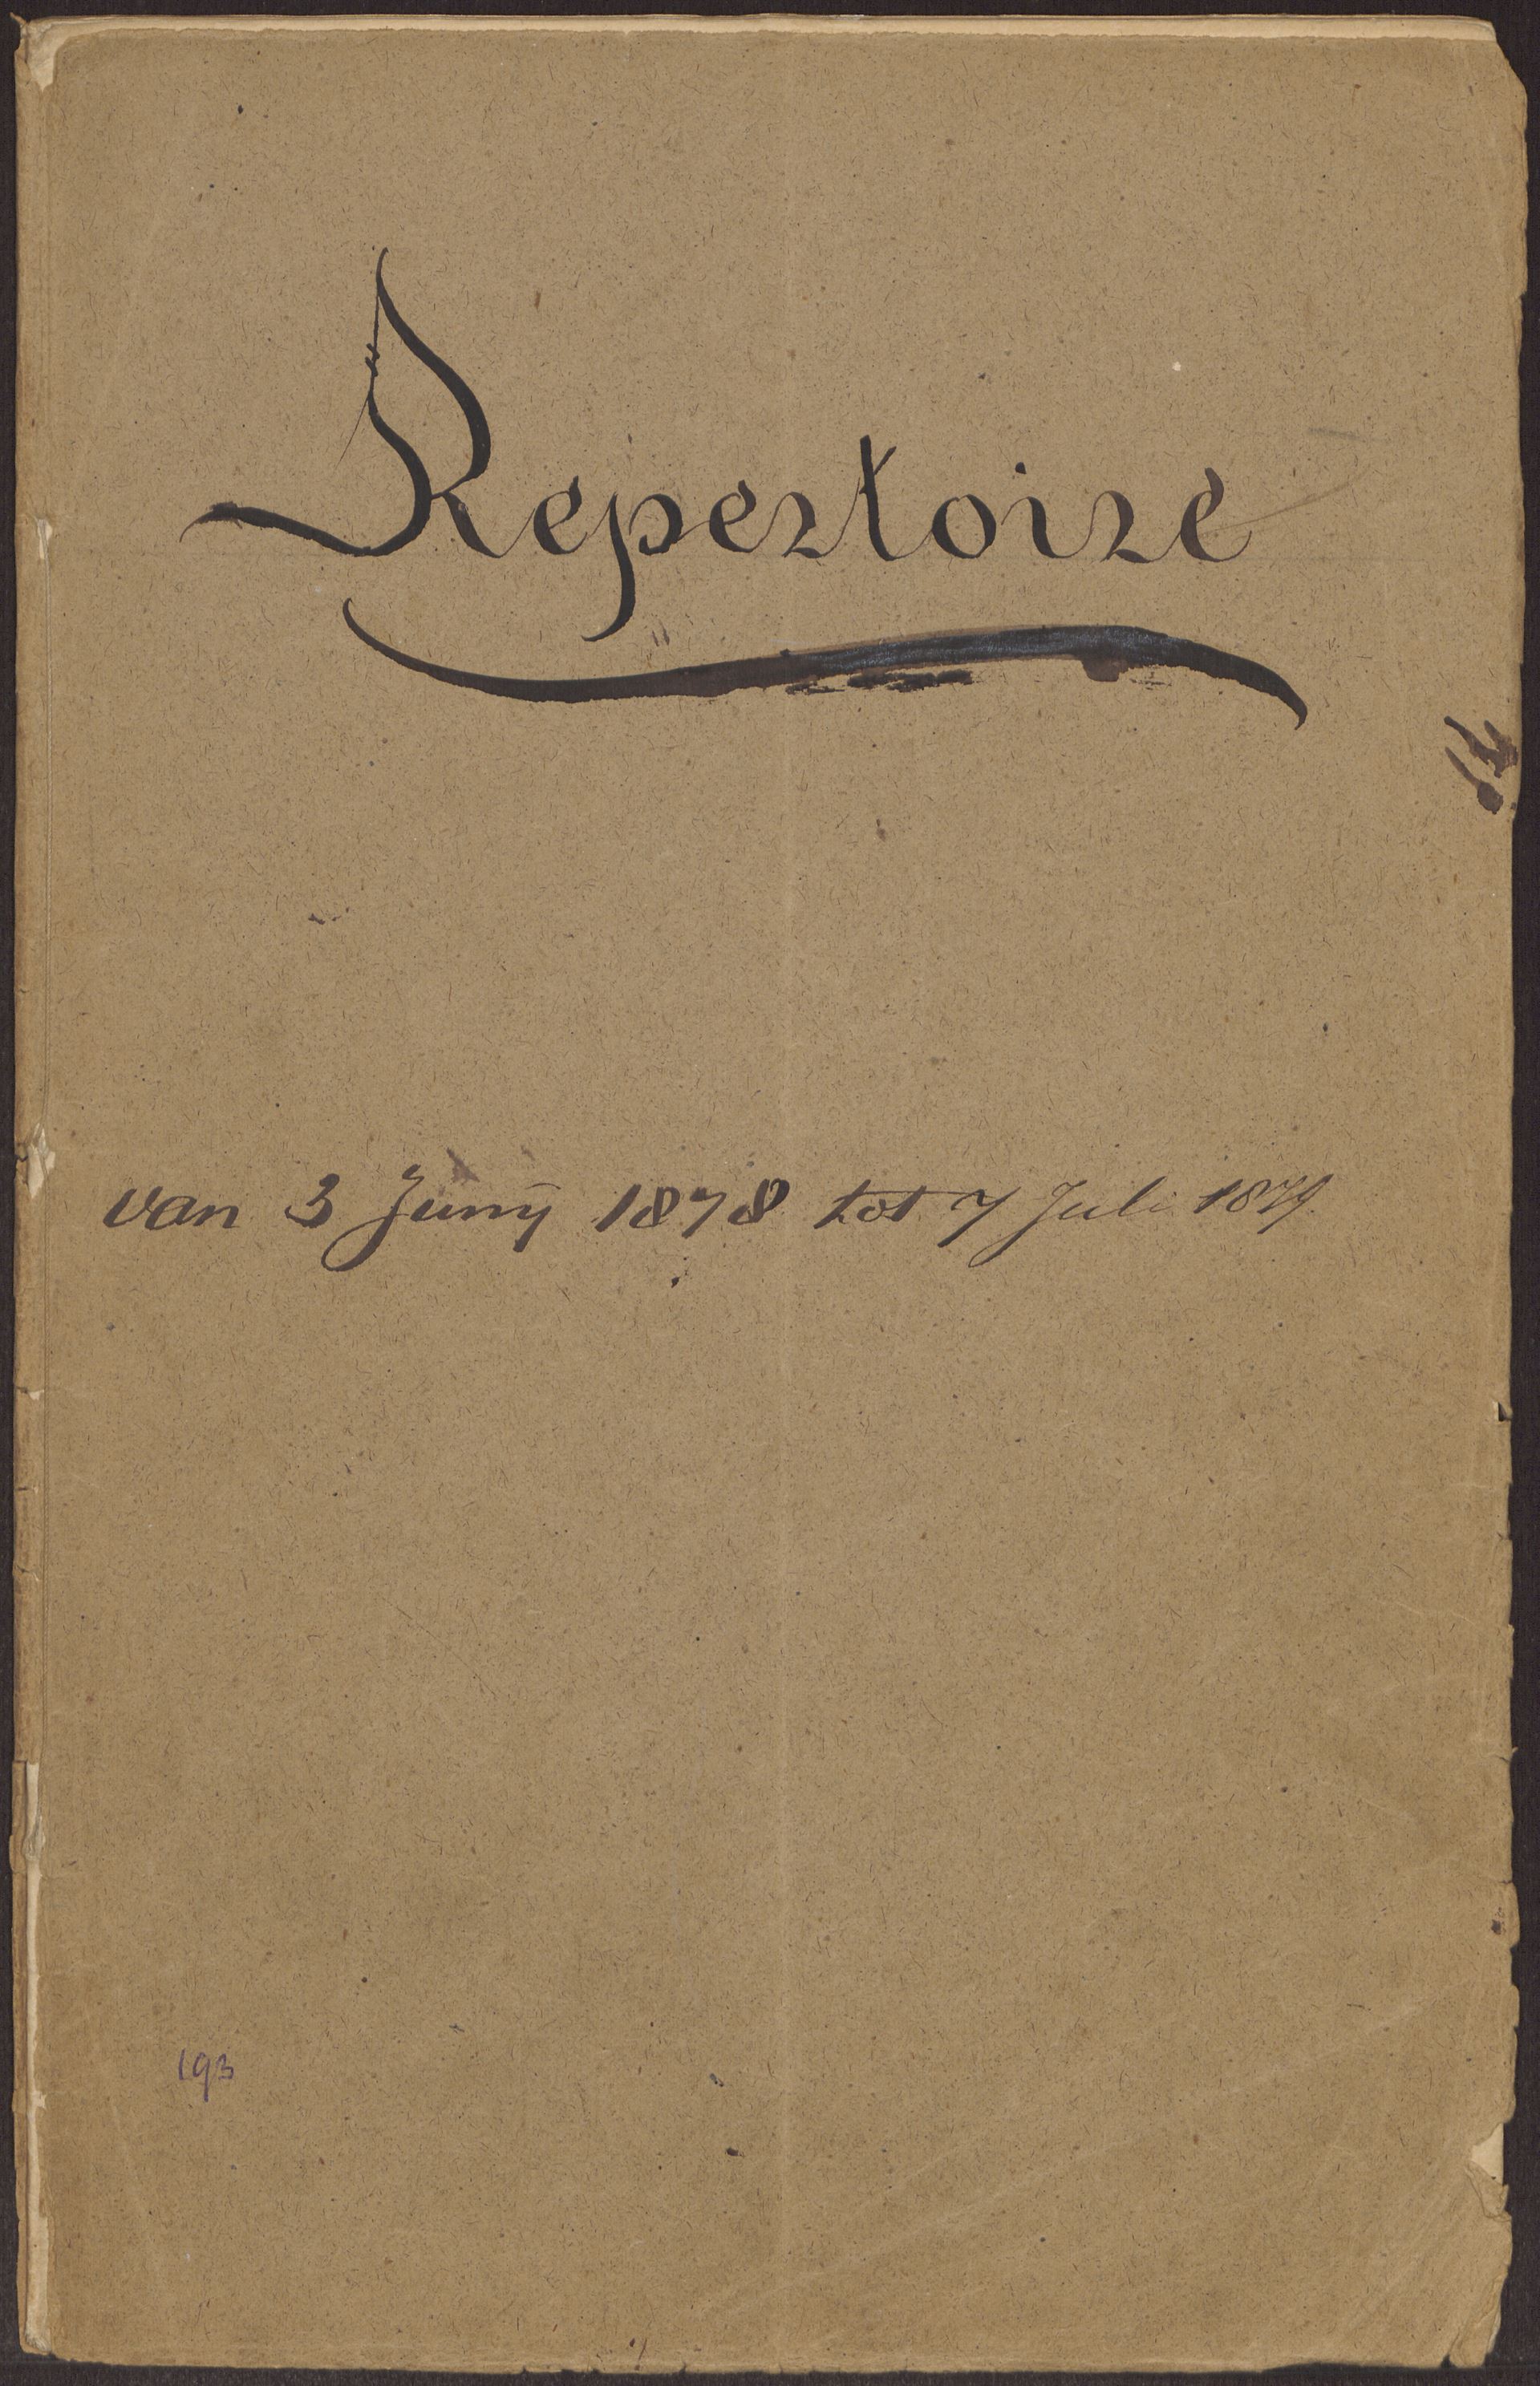 Repertoire
van 3 Juny 1878 tot 7 Juli 1879.
193